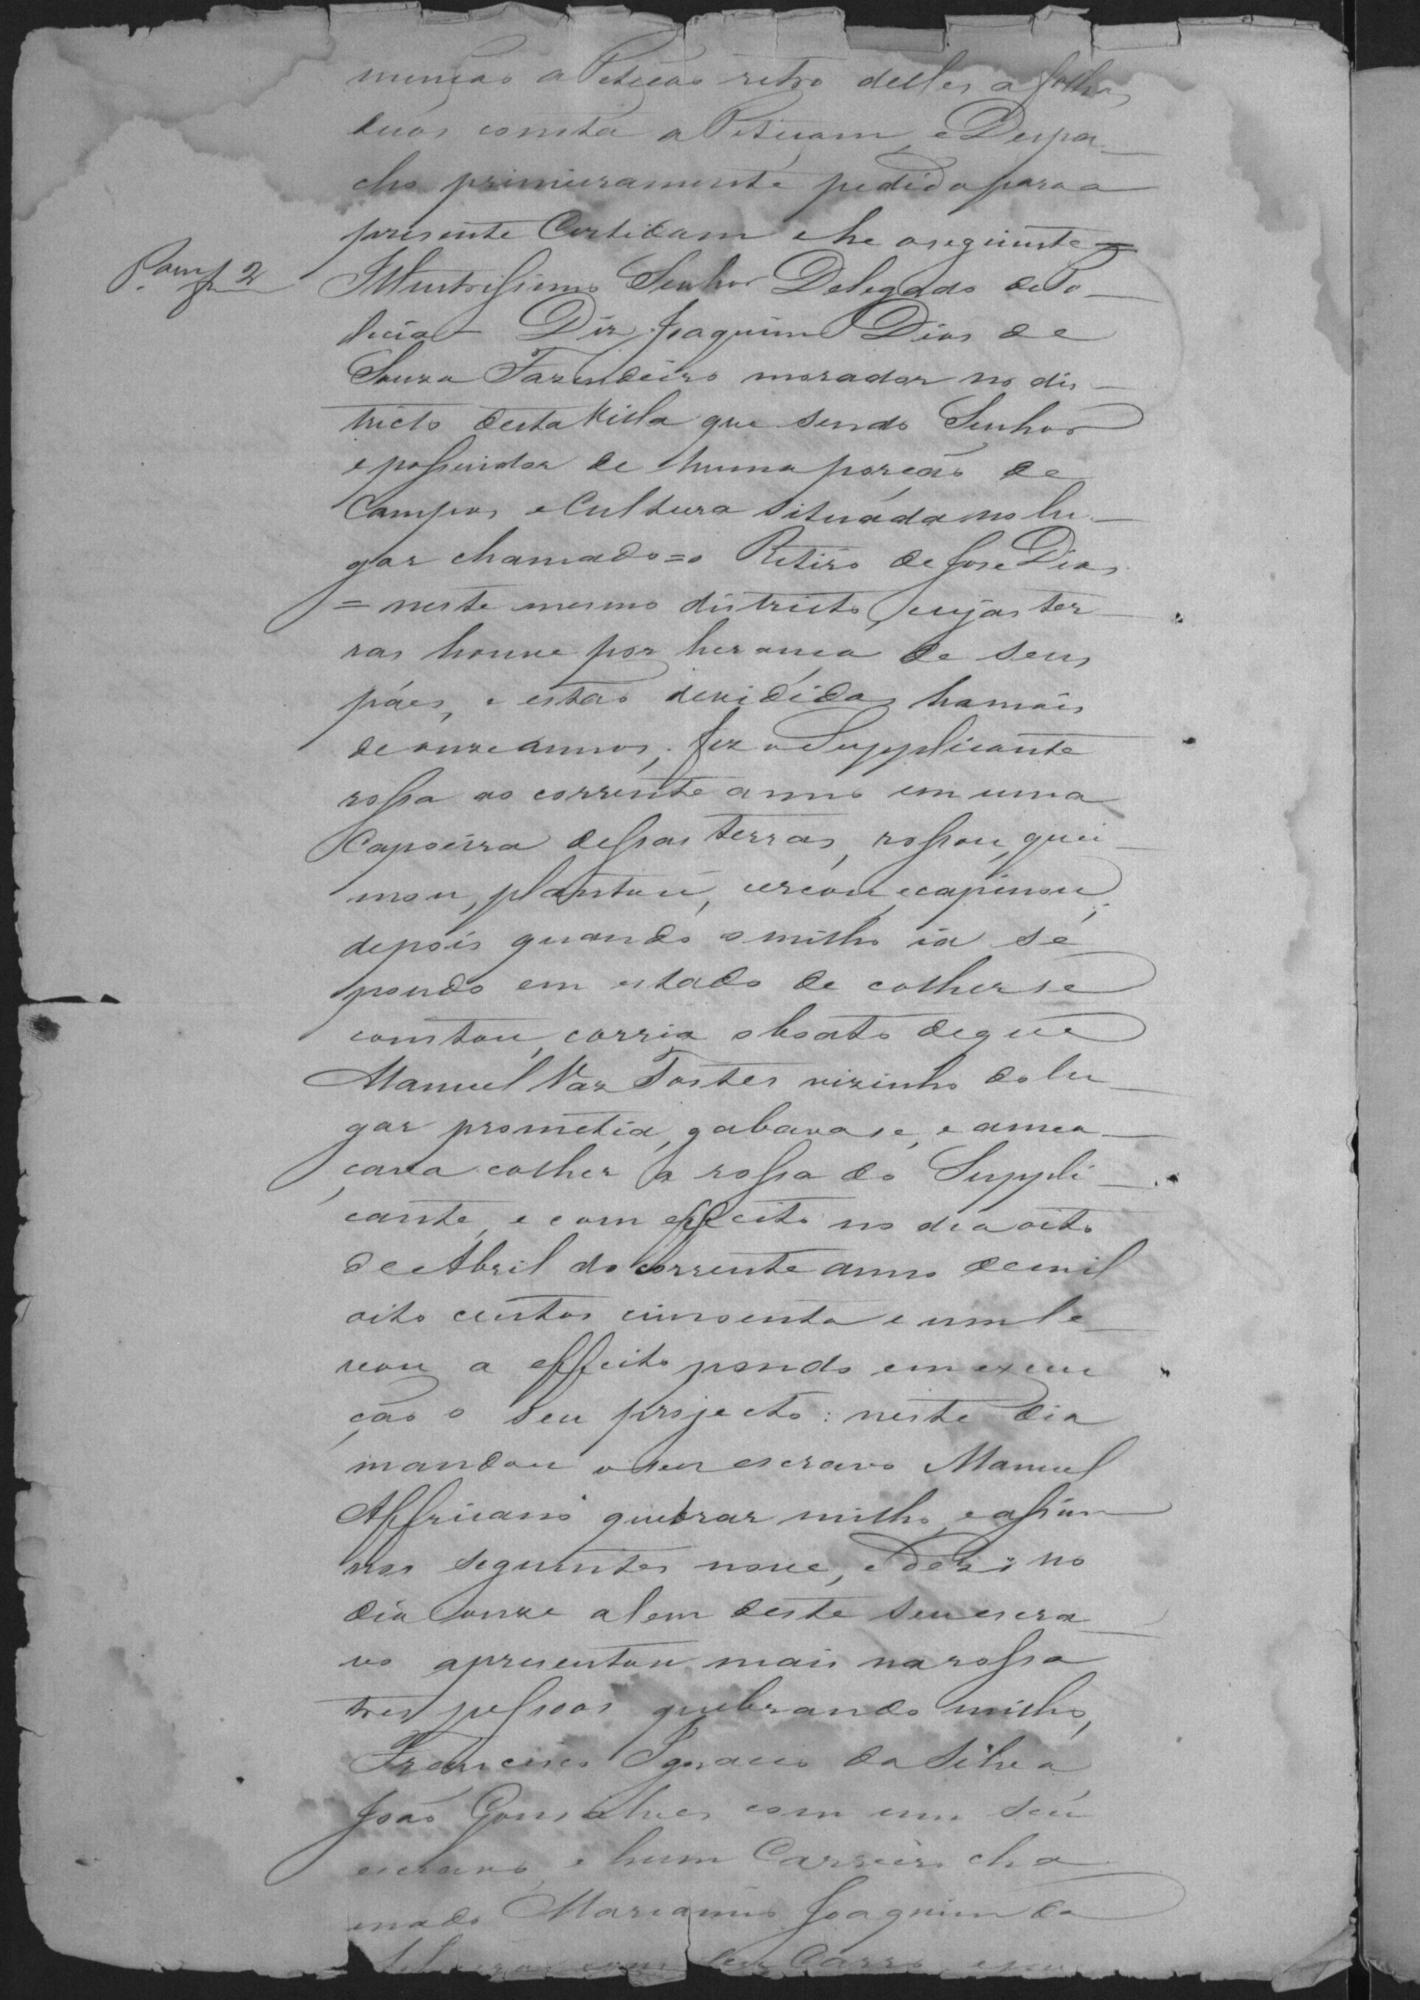 menção a Peticão retro delles a folhas
duas consta a Peticam, e Despa-
cho primeiramente pedido para a
presente Certidam e he a seguinte =
Illustrissimo Senhor Delegado de Po-
licia - Diz Joaquim Dias de
Souza Fazendeiro morador no dis-
tricto desta Villa que sendo Senhor
e possuidor de huma porcão de
Campos e Cultura situáda no lu-
gar chamado = o Retiro de Jose Dias
= neste mesmo districto, cujas ter-
ras houve por herança de seus
páes, e estão devididas ha mais
de onze annos, fez o Supplicante
rossa ao corrente anno em uma
Capoeira dessas terras, rossou, quei-
mou, plantou, cercou e capinou;
depois quando o milho ia se
pondo em estado de colherse
constou, corria o boato de que
Manuel Vaz Tostes vizinho do lu-
gar prometia, gabavase, e amea-
çava colher a rossa do Suppli-
cante, e com effeito no dia oito
de Abril do corrente anno de mil
oito centos cincoenta e um le-
vou a effeito pondo em execu
ção o seu projecto: neste dia
mandou o seu escravo Manuel
Affricano quebrar milho, e assim
nos seguintes nove, e dez; no
dia onze alem deste seu escra-
vo apresentou mais na rossa
tres pessoas quebrando milho,
Francisco Ignacio da Silva
João Gonsalves com um seu
escravo, e hum Carreiro cha
mado Marianno Joaquim da
com seu Carro
Pamf 2